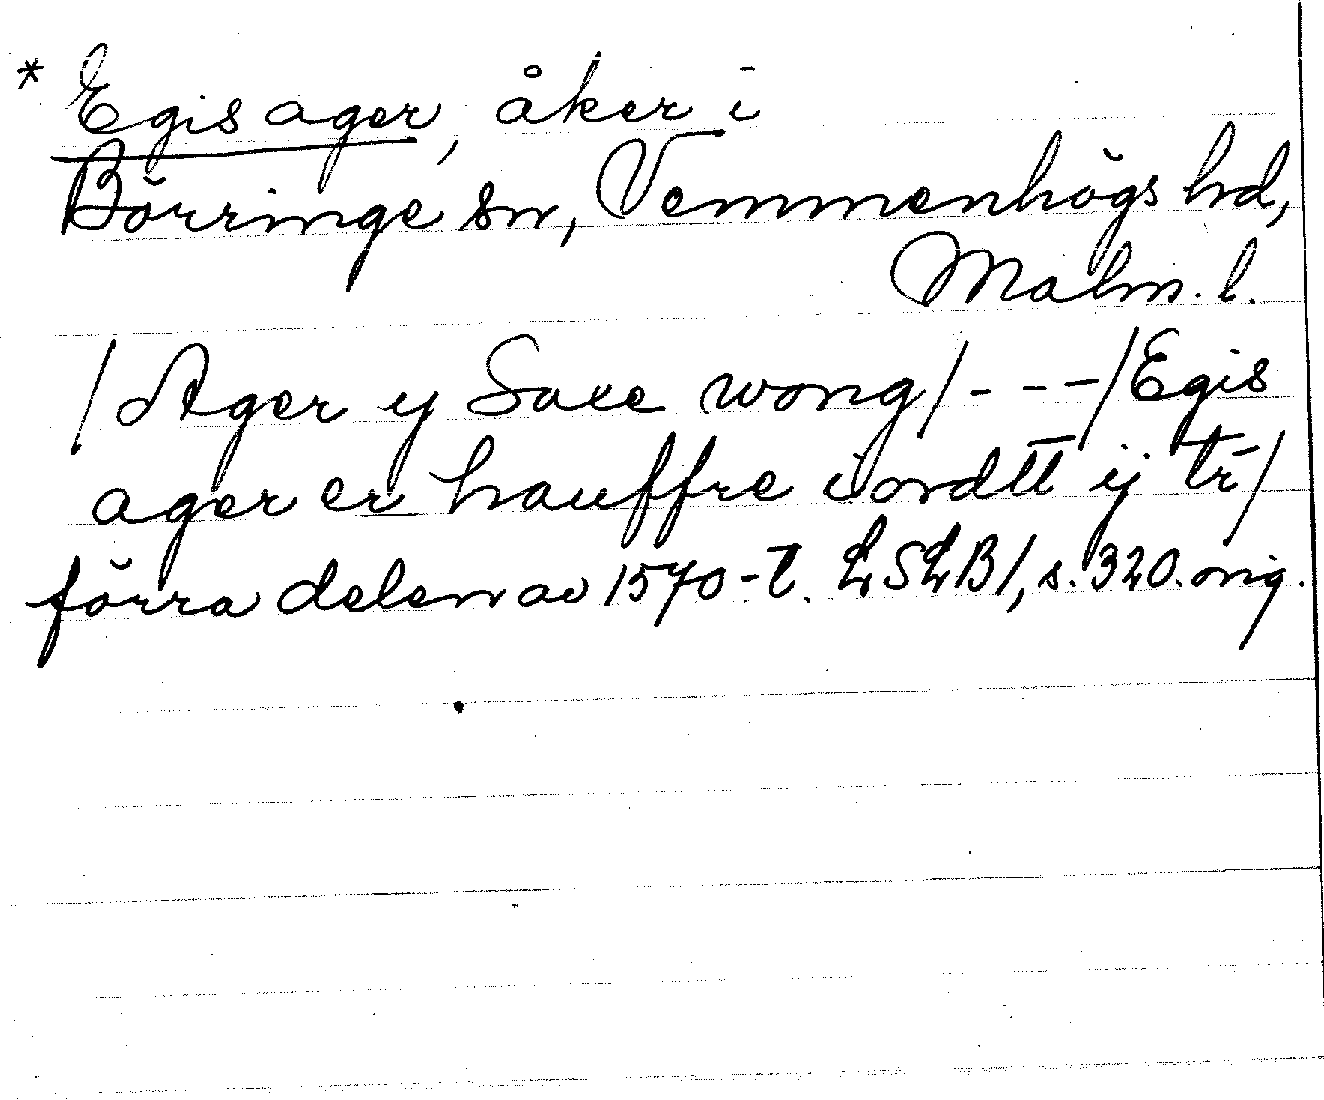 * Egis ager, åker i
Börringe sn, Vemmenhögs hd,
Malm. l.
/Ager y Saxe wong/ - - - /Egis
ager er hauffre iordtt ij tr/
förra delen av 1570-t. LSLB1, s. 320. orig.